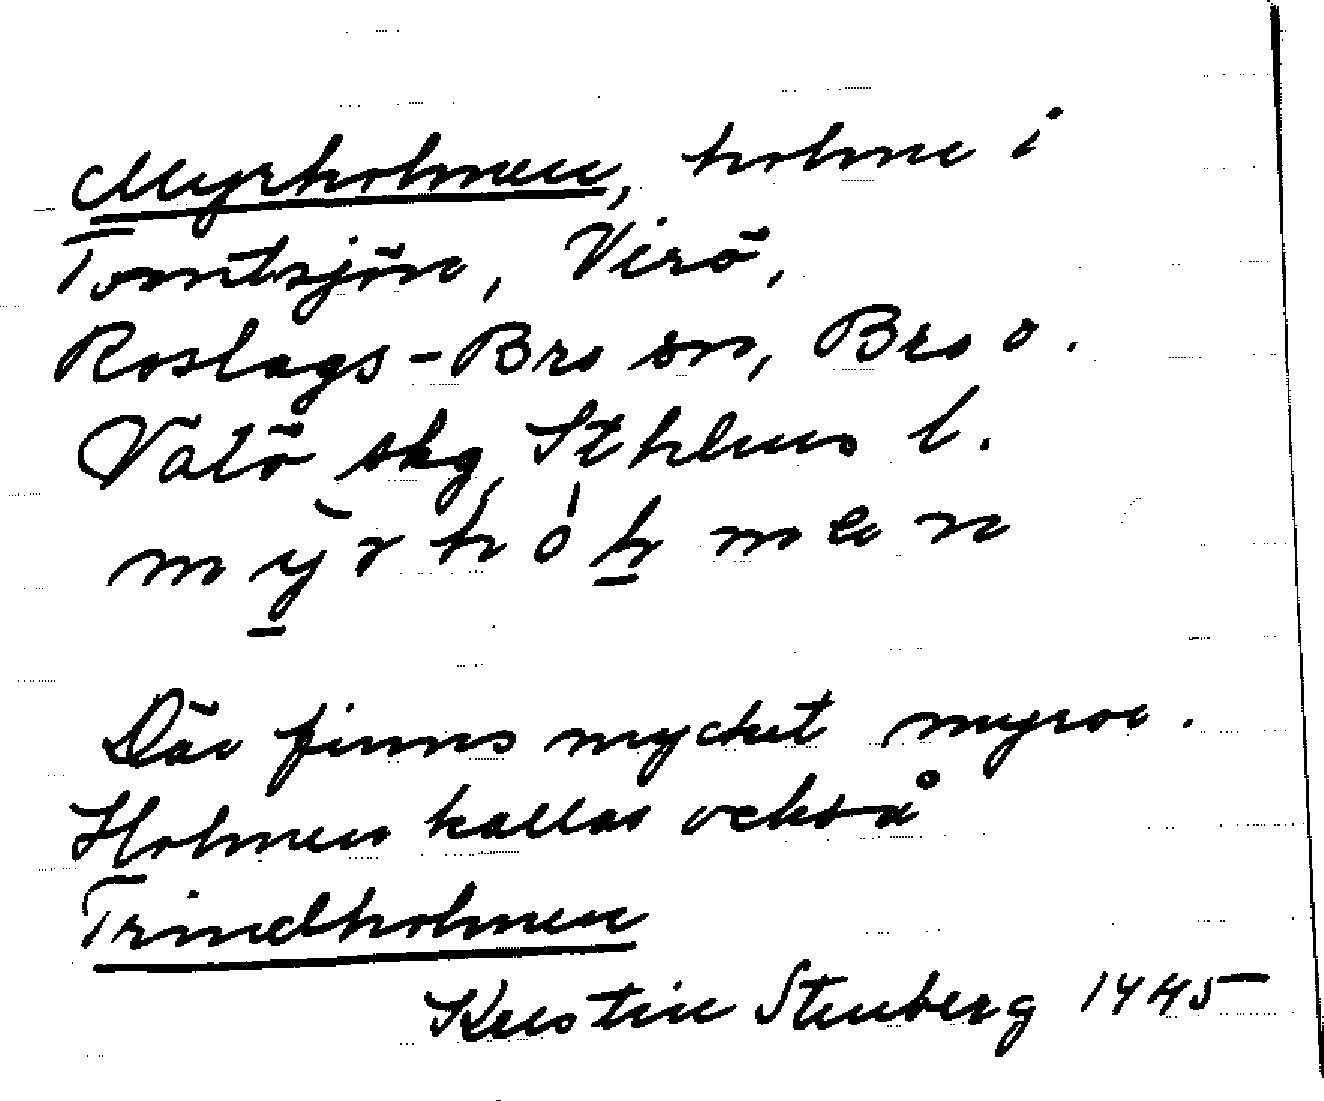 Myrholmen, holme i
Tomtsjön, Virö,
Roslags-Bro sn, Bro o.
Vätö skg, Sthlms l.
mỳrhólmen
Där finns mycket myror.
Holmen kallas också
Trindholmen
Kerstin Stenberg 1945